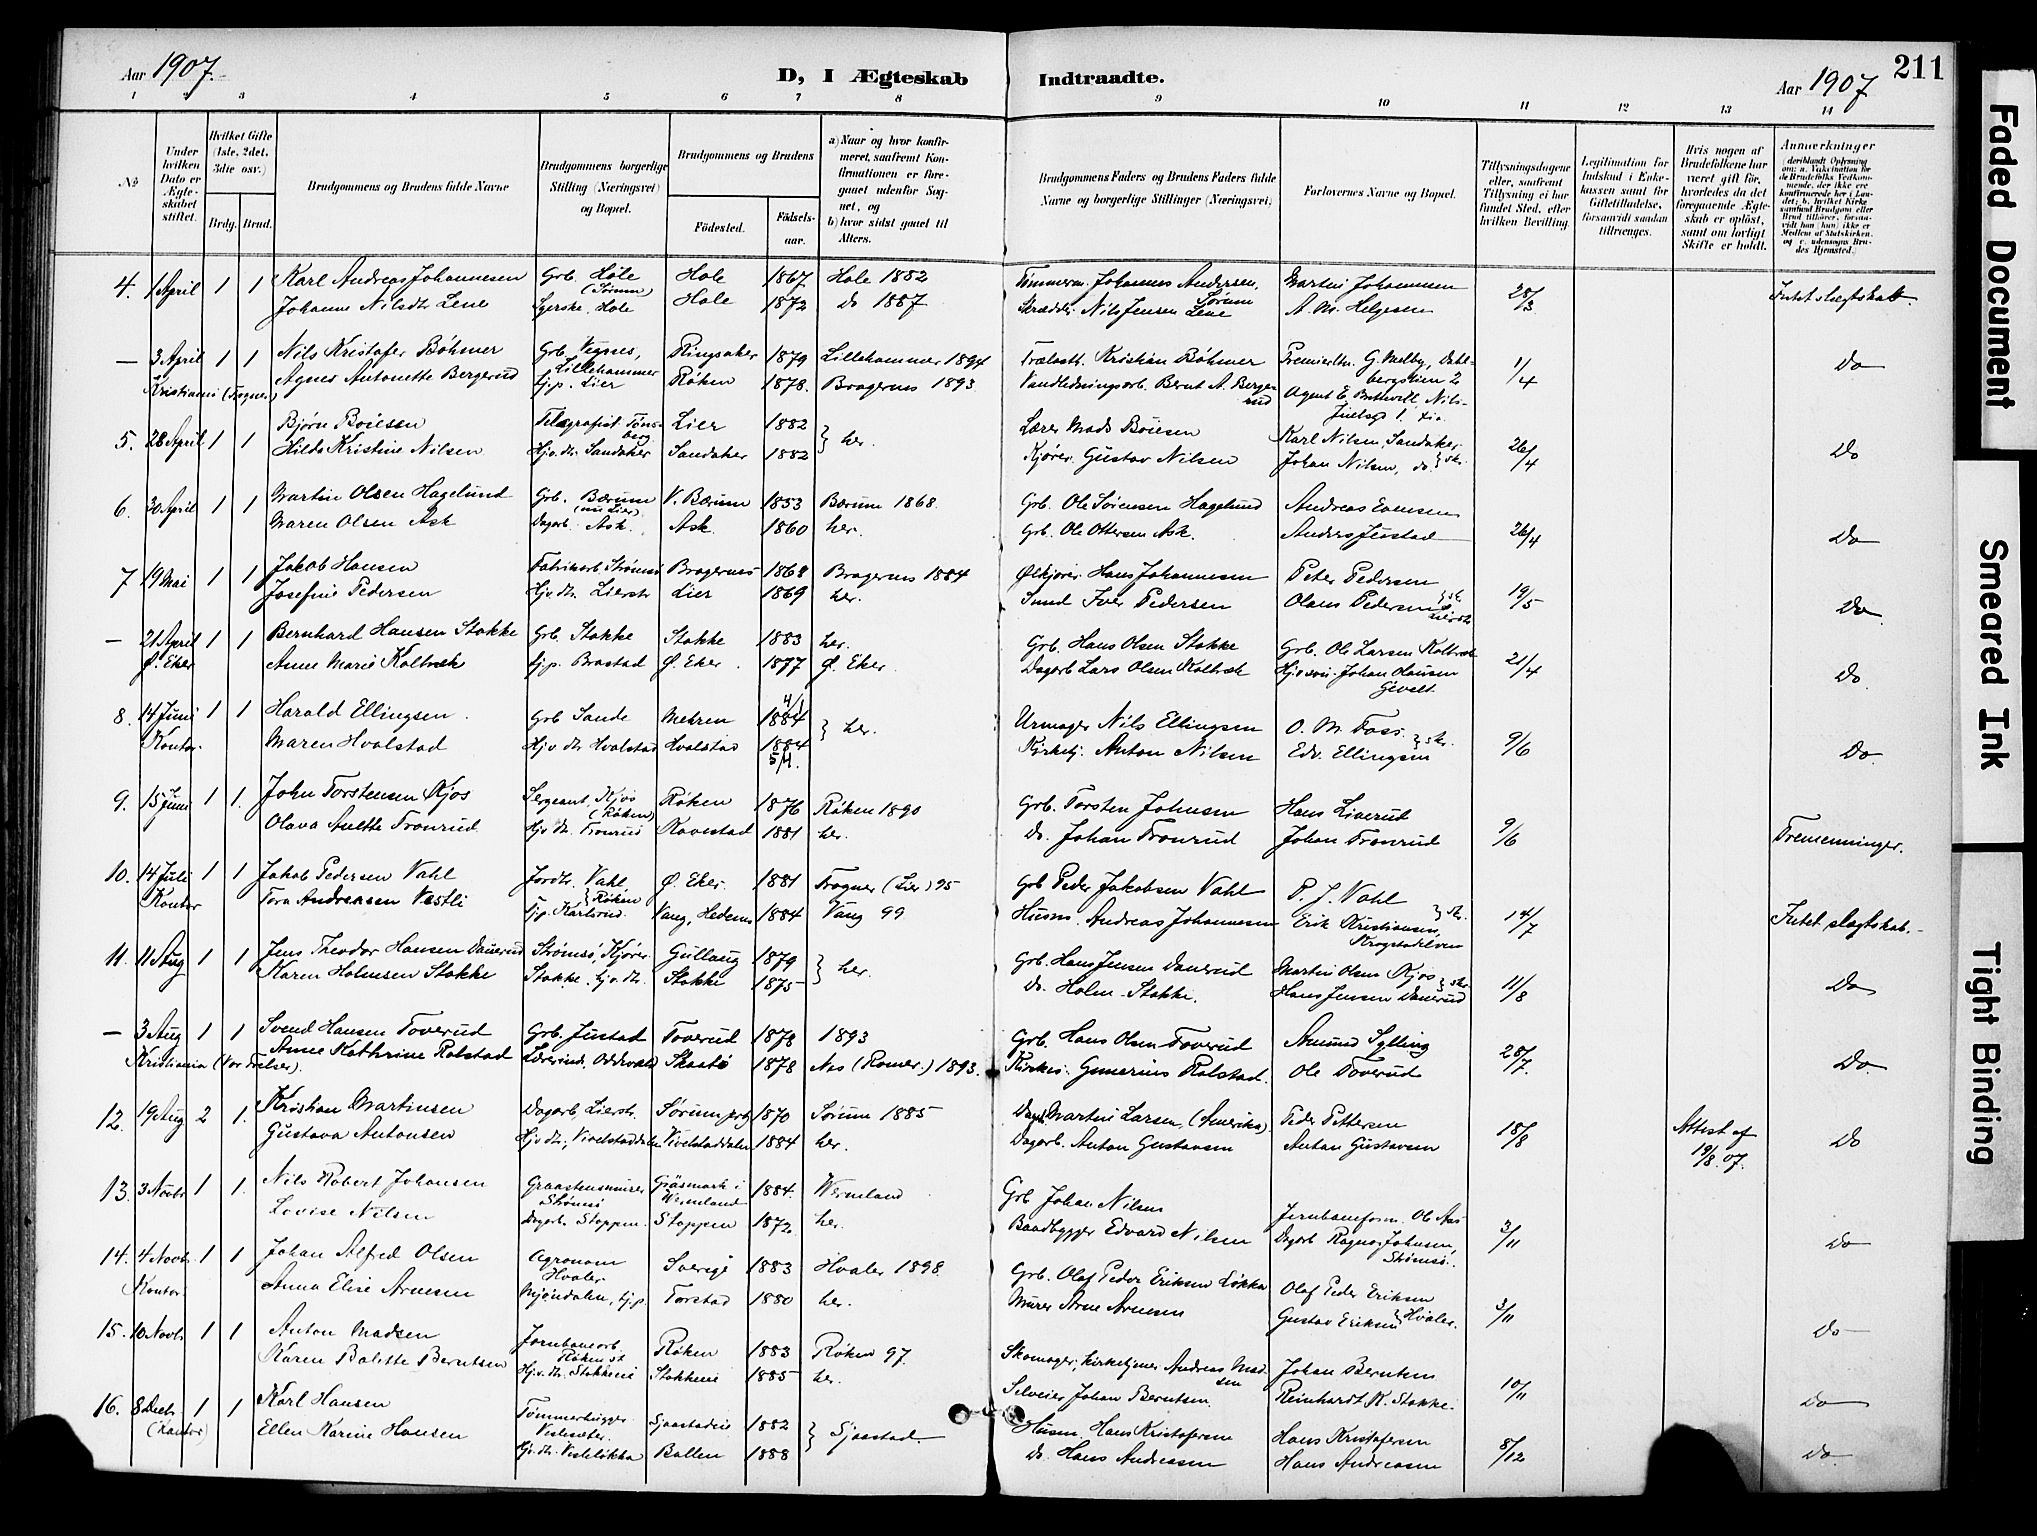 Aar 1907.
D, I Ægteskab Indtraadte.
Aar 1907
211
1 2 3 4 5 6 7 8 9 10 11 12 13 14
No
Under hvilken Dato er Ægteskabet stiftet.
Hvilket Gifte (1ste, 2det, 3die osv.)
Brdg. Brud.
Brudgommens og Brudens fulde Navne
Brudgommens borgerlige Stilling (Næringsvei) og Bopæl.
Brudgommens og Brudens
Födested.
Födsels-aar.
a) Naar og hvor konfirmeret, saafremt Konfirmationen er foregaaet udenfor Sognet, og
b) hvor sidst gaaet til Alters.
Brudgommens Faders og Brudens Faders fulde Navne og borgerlige Stillinger (Næringsvei)
Forlovernes Navne og Bopæl.
Tillysningsdagene eller, saafremt Tillysning ei har fundet Sted, efter hvilken Bevilling.
Legitimation for Indskud i Enkekassen samt for Giftetilladelse, forsaavidt saadan tiltrænges.
Hvis nogen af Brudefolkene har været gift för, hvorledes da det foregaaende Ægteskab er oplöst, samt om lovligt Skifte er holdt.
Anmærkninger
4. 1 April 1 1 Karl Andreas Johannesen Grb. Hole (Sörum) Hole 1867 Hole 1882 Tömmerm. Johannes Andersen, Sörum Martin Johannesen 28/3 Intet slægtskab.
Johanne Nilsdtr Lene Syerske, Hole Hole 1872 do 1887 Skrædder Nils Jensen Lene A. M. Helgesen
— 3 April 1 1 Nils Kristofer Böhmer Grb. Vegnes, Lillehammer Ringsaker 1879 Lillehammer 1894 Kristian Böhmer Premierltn. G. Melby, 1/4 Do
Kristiania (Fagner) Agnes Antonette Bergerud tj.p. Lier Röken 1878. Bragernes 1893 Vandledningsarb. Bernt A. Bergerud Agent E.
5. 28 April 1 1 Björn Boiesen Telegrafist Tönsberg Lier 1882 } her. Lærer Mads Boiesen Karl Nilsen, Sandaker 26/4 Do
Hilda Kristine Nilsen Hjv. dtr. Sandaker Sandaker 1882 Kjörer Gustav Nilsen Johan Nilsen, do. } skr.
6. 30 April 1 1 Martin Olsen Hagelund Grb. Bærum (nu Lier) V. Bærum 1853 Bærum 1868. Grb. Ole Sörensen Hagelund Andreas Evensen 26/4 Do
Maren Olsen Ask Dagarb. Ask. Ask. 1860 her. Grb. Ole Ottersen Ask. Anders Justad
7 19 Mai 1 1 Jakob Hansen Fabrikarb. Strömsö Bragernes 1868 Bragernes 1884 Ölkjörer Hans Johannesen Peter Pedersen 19/5 Do
Josefine Pedersen Hjv. dtr. Lierstr. Lier 1869 her. Smed Iver Pedersen Olaus Pedersen } skr. Lierstr.
— 21 April 1 1 Bernhard Hansen Stokke Grb. Stokke Stokke 1883 her. Grb. Hans Olsen Stokke Grb. Ole Larsen Kolbræk 21/4 Do
Ö. Eker Anne Marie Kolbræk tj.p. Brastad Ö. Eker 1877 Ö. Eker. Dagarb Lars Olsen Kolbræk Johan Hansen
8. 14 Juni 1 1 Harald Ellingsen. Grb Sande Mehren 4/1 1884 } her. Urmager Nils Ellingsen O. M. Foss 9/6 Do
Kontor. Maren Hvalstad Hjv. dtr. Hvalstad Hvalstad 1884 Kirketj. Anton Nilsen Edv. Ellingsen } skr.
9. 15 Juni 1 1. John Torstensen Kjos Sergeant, Kjos (Röken) Röken 1876 Röken 1890 Grb. Torsten Johnsen Hans Liverud 9/6 Tremenninger.
Olava Anette Tronrud Hjv. dtr. Tronrud Kovestad 1881 her. do. Johan Tronrud Johan Tronrud
10. 14 Juli 1 1 Jakob Pedersen Vahl Jordbr. Vahl, Röken Ö. Eker. 1881 Frogner (Lier) 95 Grb Peder Jakobsen Vahl P. J. Vahl 14/7 Intet slægtskab.
Kontor Tora Andreasen Vestli tj.p. Karlsrud. Vang, Hedem. 1884 Vang 99 Husm. Andreas Johannesen Erik Kristiansen, } skr. Krogstadelven
11. 11 Aug 1 1 Jens Theodor Hansen Dauerud Strömsö, Kjörer Gullaug 1879 } her. Grb. Hans Jensen Dauerud Martin Olsen Kjos 11/8 Do
Karen Holmsen Stokke Stokke, hjv. dtr. Stokke 1875 do. Holm Stokke. Hans Jensen Dauerud } skr.
— 3 Aug 1 1 Svend Hansen Toverud Grb. Justad Toverud 1878 1893 Grb. Hans Olsen Toverud Amund Sylling 28/7. Do
Kristiania (Vor Frelser). Anne Kathrine Rolstad Lærerind. Skaatö 1878 Nes (Romer.) 1893. Kirkes. Gunerius Rolstad. Ole Toverud
12. 19 Aug 2 1. Kristian Martinsen Dagarb Lierstr. Sörum prgj 1870 Sörum 1885 Dagarb Martin Larsen, (Amerika) Peder Pettersen 18/8 Attest af 19/8. 07. Do
Gustava Antonsen Hjv. dtr, Vivelstaddalen Vivelstaddalen 1884 her. Dagarb. Anton Gustavsen Anton Gustavsen
13. 3 Novbr 1 1. Nils Robert Johansen Graastensmurer Strömsö Gräsmark i Wermland 1884. Wermland Grb Johan Nilsen Jernbaneform. Ole Aas 3/11 Do
Lovise Nilsen Dagarb. Stoppen Stoppen 1872. her. Baadbygger Edvard Nilsen Dagarb Ragnar Johnsen, Strömsö.
14. 4 Novbr. 1 1 Johan Alfred Olsen Agronom Hvaler Sverige 1883 Hvaler 1898 Grb. Olaf Peder Eriksen Lökka Olaf Peder Eriksen 3/11 Do
Kontor. Anna Elise Arnesen Mjöndalen, tj.p. Torstad 1880 her. Murer Arne Arnesen Gustav Eriksen } Hvaler.
15. 10 Novbr 1 1 Anton Madsen Jernbanearb. Röken st Röken 1883 Röken 97. Skomager, kirketjener Andreas Madsen Johan Berntsen 10/11 Do
Karen Bolette Berntsen Hjv. dtr. Stokkeie Stokkeie 1885 her. Selveier Johan Berntsen. Reinhardt K. Stokke.
16. 8 Decbr. 1 1 Karl Hansen Tömmerhugger Sjaastadeie 1882 } Sjaastad. Husm. Hans Kristofersen Hans Kristofersen 8/12 Do.
(Kontor) Ellen Karine Hansen hjv. dtr. Vestelökka Ballen 1888 do. Hans Andreasen Hans Andreasen
Faded Document
Smeared Ink
Tight Binding